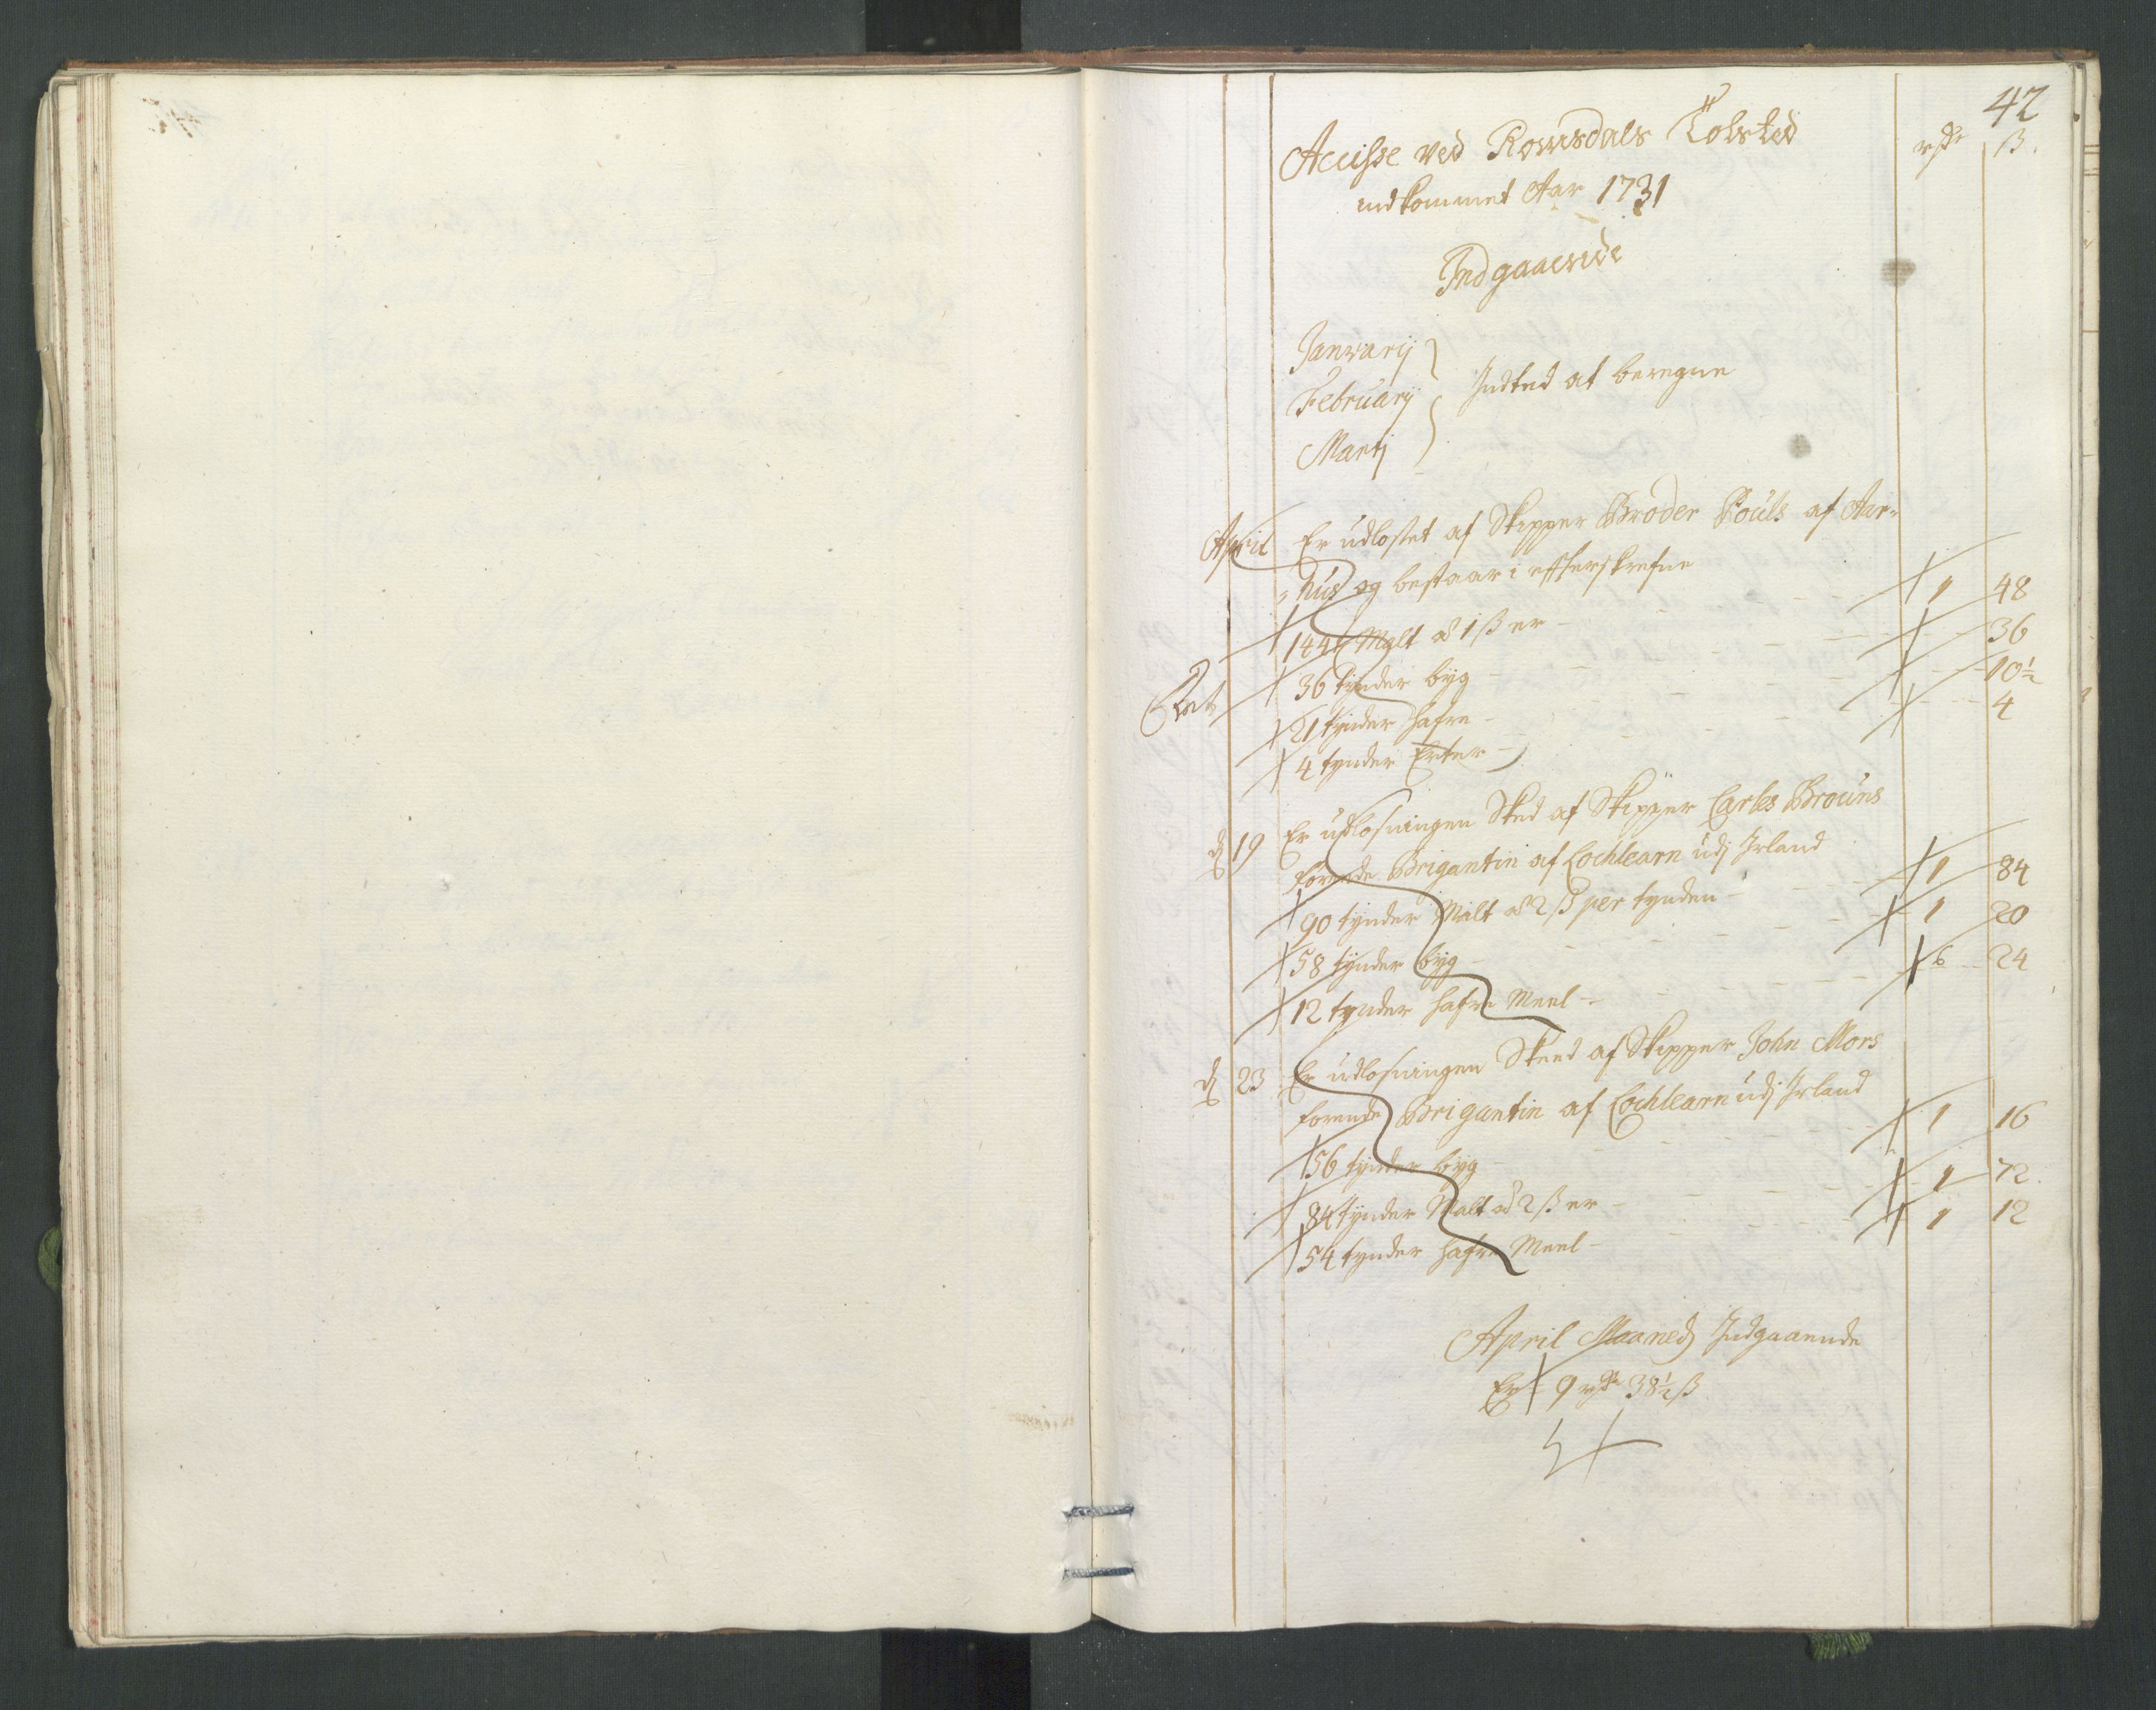 42
Accisse ved Romsdals Tolsted rdr ß.
indkommet Aar 1731
Indgaaende
Januarij
Februarij Indted at beregne
Martj
April Er udlosset af Skipper Broder Pouls af Aar-
hus og bestaar i effterskrefne
144 Malt à 1 ß er - 1 48
36 tynder byg - 36
21 tynder hafre - 10½
4 tynder Erter - 4
d 19 Er udlosningen Sked af Skipper Carles Brouns
forende Brigantin af Lochlearn udj Irland
90 tynder Malt à 2 ß per tynden - 1 84
58 tynder byg - 1 20
12 tynder hafre Meel - 24
d 23 Er udlosningen Skeed af Skipper John Mors
forende Brigantin af Lochlearn udj Irland
56 tynder byg - 1 16
84 tynder Malt à 2 ß er - 1 72.
54 tynder hafre Meel - 1 12
April Maaned Indgaaende
Er 9 rdr 38½ ß